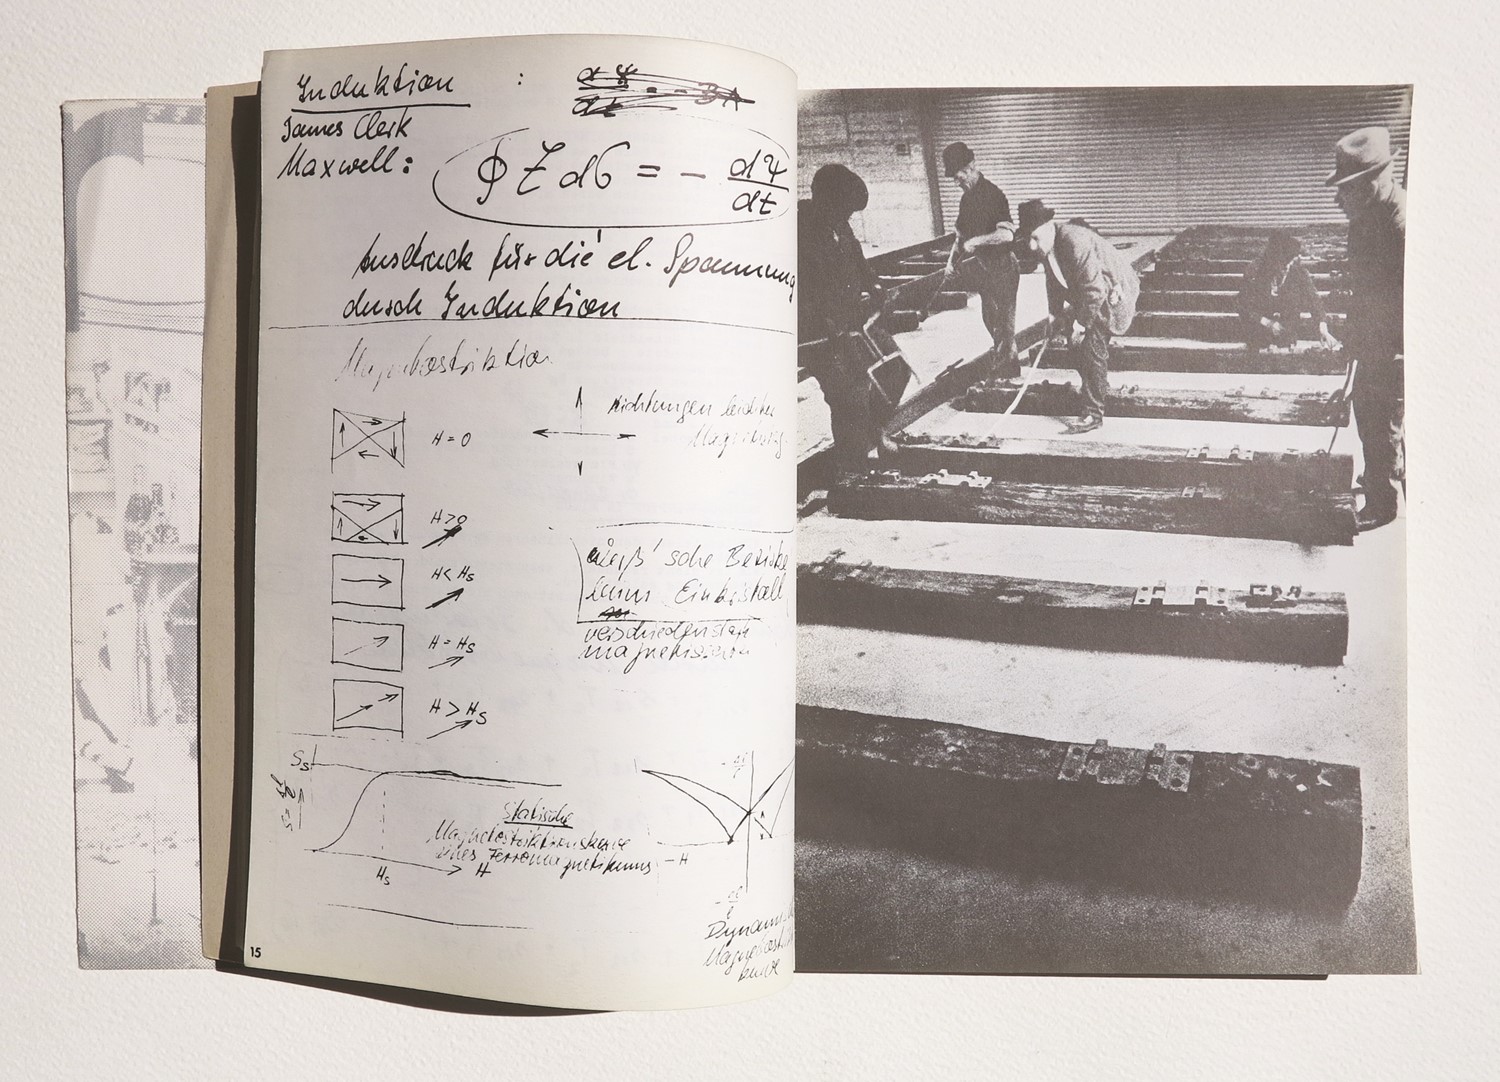 Induktion :
James Clerk
Maxwell:
∮ Z dσ = - dΨ/dt
Ausdruck für die el. Spannung
durch Induktion
Magnetostriktion
Richtungen leichter
H = 0
H > 0
H < Hs
H = Hs
H > Hs
Weiß'sche Bezirke
beim Einkristall
verschieden stark
magnetisiert
Ss
Statische
Magnetostriktionskurve
eines Ferromagnetikums
Hs
H
-H
15